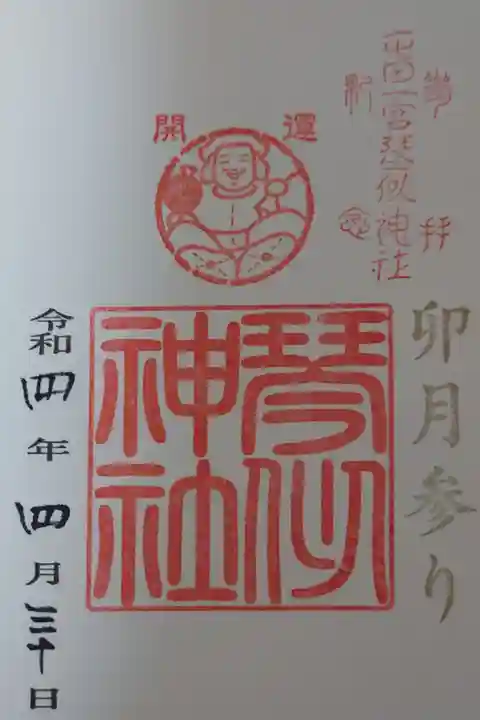 屯田一宮琴似神社
拝
開運
卯月参り
琴似
神社
令和四年四月三十日